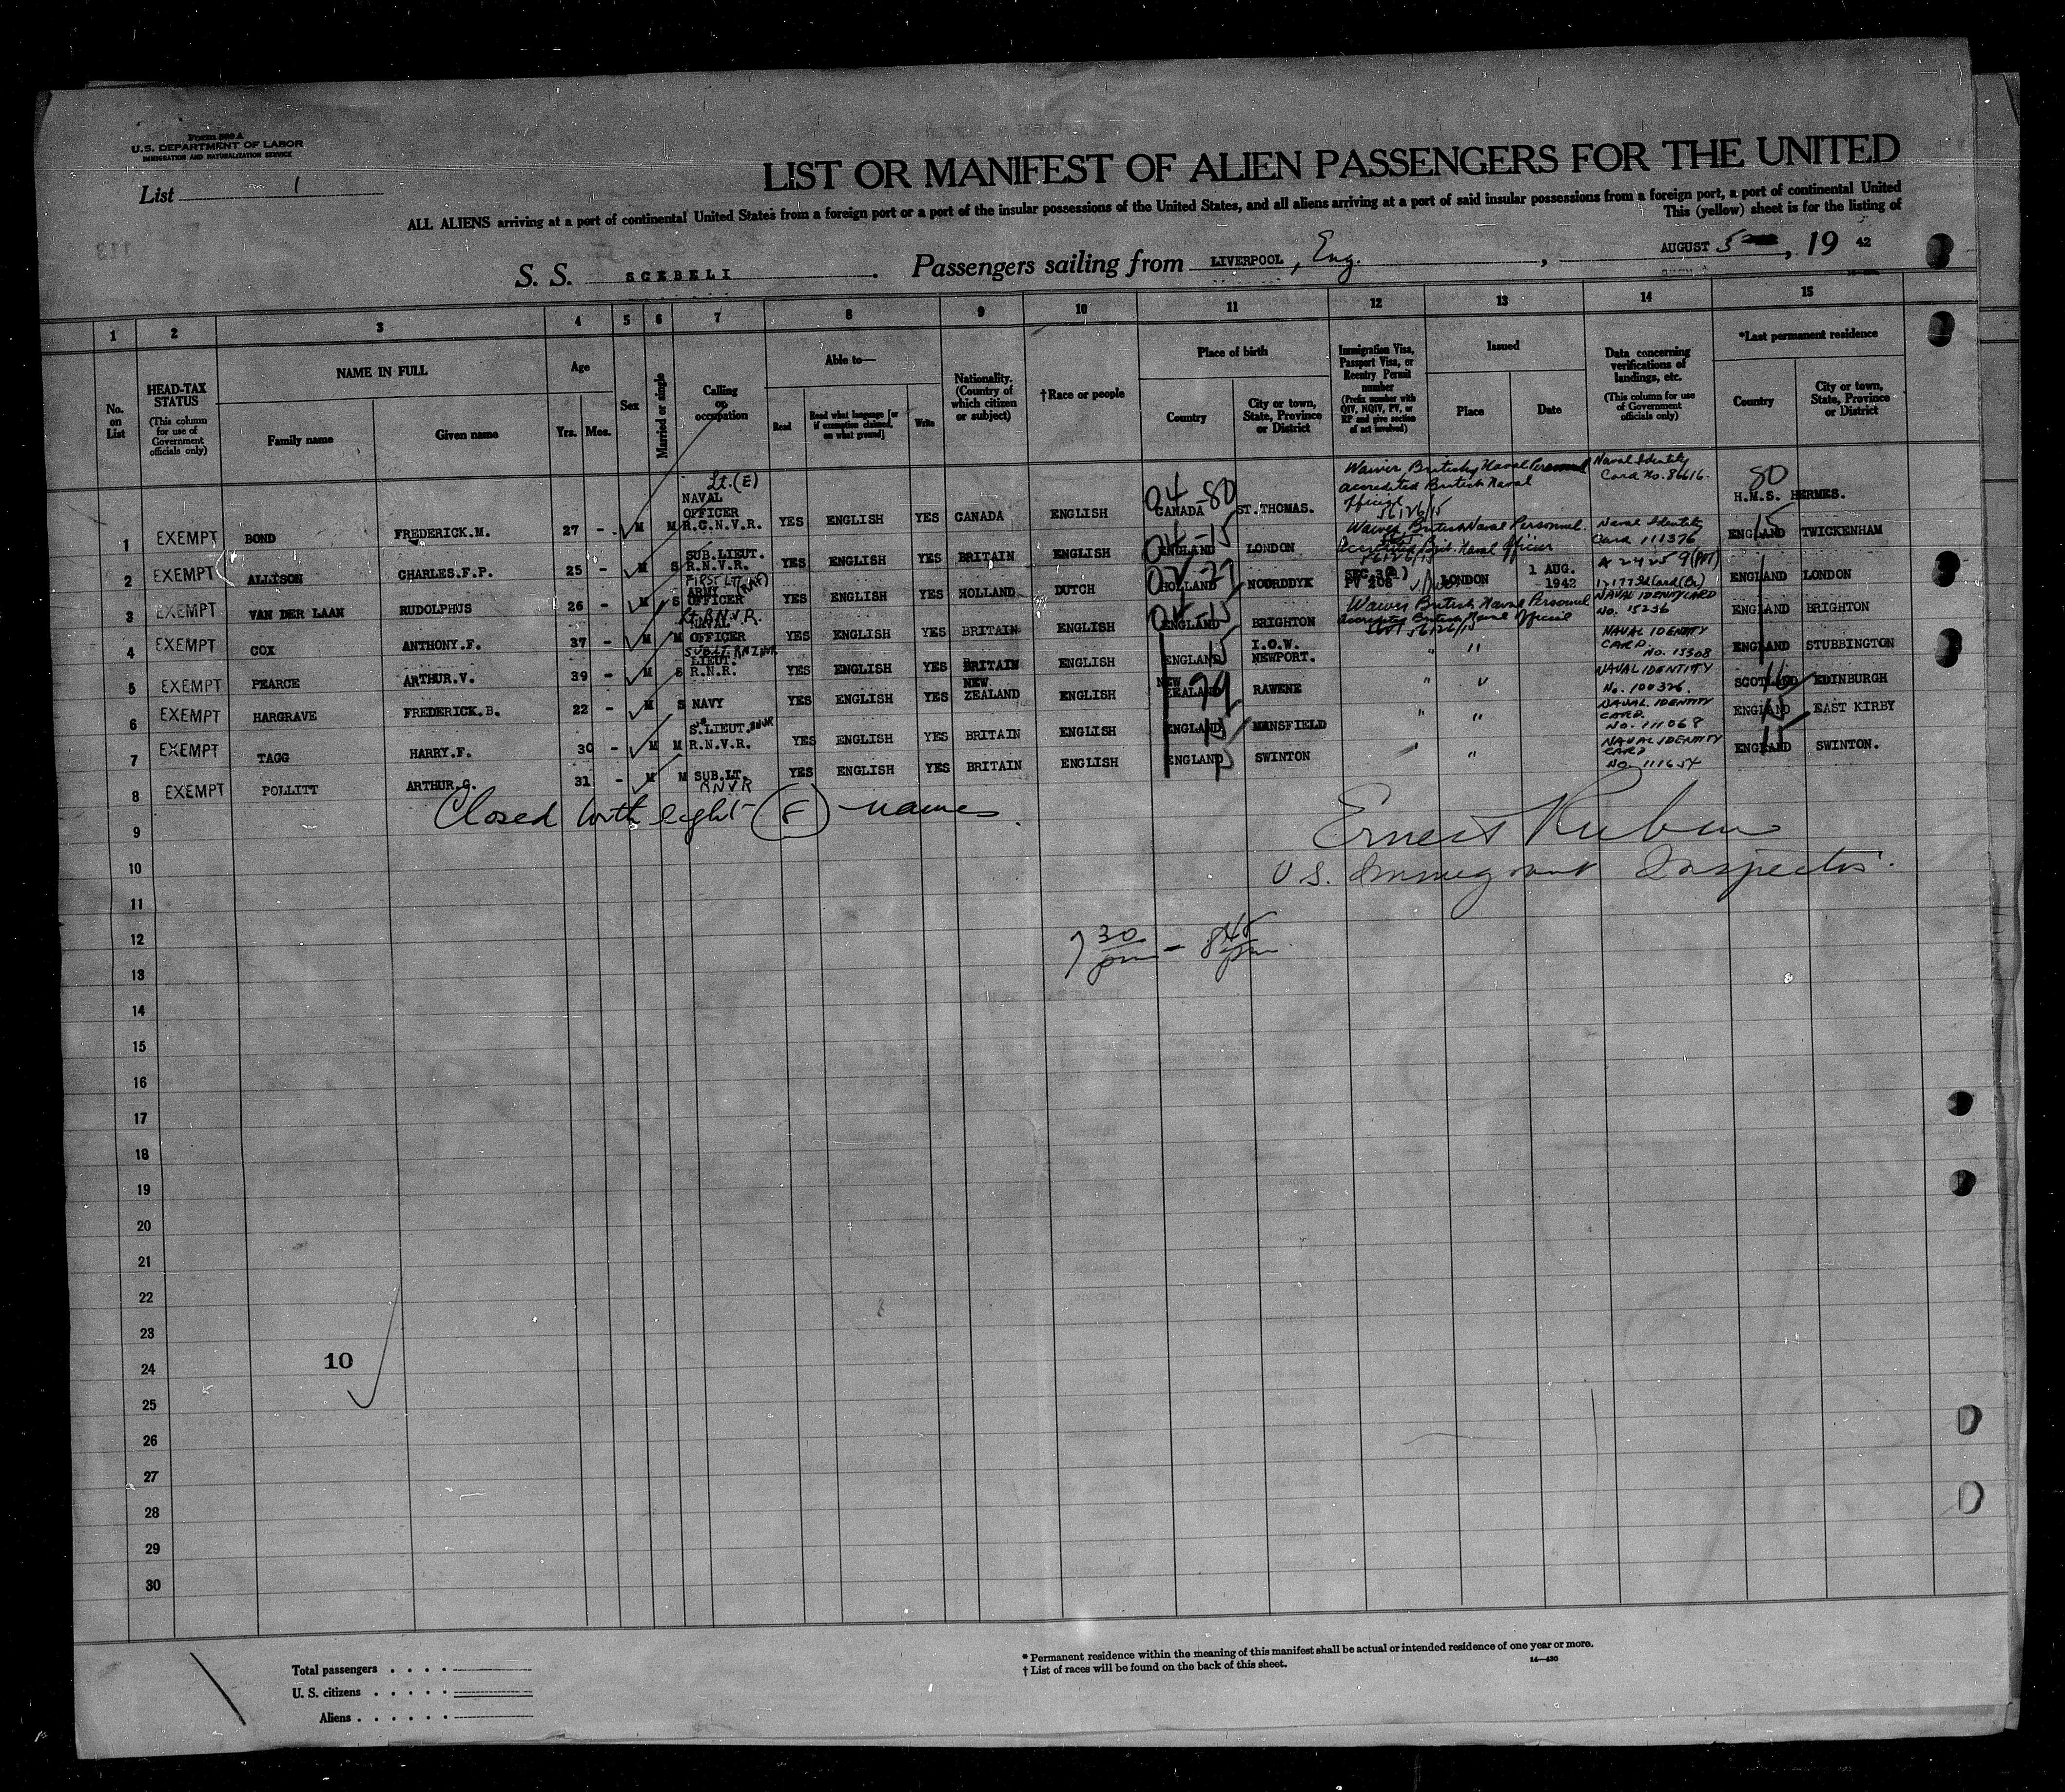 Form 500 A
U.S. DEPARTMENT OF LABOR
IMMIGRATION AND NATURALIZATION SERVICE
List 1
LIST OR MANIFEST OF ALIEN PASSENGERS FOR THE UNITED
ALL ALIENS arriving at a port of continental United States from a foreign port or a port of the insular possessions of the United States, and all aliens arriving at a port of said insular possessions from a foreign port, a port of continental United
This (yellow) sheet is for the listing of
S. S. SCEBELI. Passengers sailing from LIVERPOOL, Eng., AUGUST 5, 19 42
1 2 3 4 5 6 7 8 9 10 11 12 13 14 15
No. on List
HEAD-TAX STATUS (This column for use of Government officials only)
NAME IN FULL
Family name
Given name
Age
Yrs. Mos.
Sex
Married or single
Calling or occupation
Able to—
Read
Read what language [or if exemption claimed, on what ground]
Write
Nationality. (Country of which citizen or subject)
†Race or people
Place of birth
Country
City or town, State, Province or District
Immigration Visa, Passport Visa, or Reentry Permit number (Prefix number with QIV, NQIV, PV, or RP and give section of act involved)
Issued
Place
Date
Data concerning verifications of landings, etc. (This column for use of Government officials only)
*Last permanent residence
Country
City or town, State, Province or District
1 EXEMPT BOND FREDERICK.M. 27 - M M Lt.(E) NAVAL OFFICER R.C.N.V.R. YES ENGLISH YES CANADA ENGLISH 04-80 CANADA ST.THOMAS. Waiver British Naval Personnel accredited British Naval Official 56126/15 Naval Identity Card No. 86616. 80 H.M.S. HERMES.
2 EXEMPT ALLISON CHARLES.F.P. 25 - M S SUB.LIEUT. R.N.V.R. YES ENGLISH YES BRITAIN ENGLISH 04-15 ENGLAND LONDON Waiver British Naval Personnel. Accredited Brit. Naval Officer 56126/15 Naval Identity Card 111376 ENGLAND 15 TWICKENHAM
3 EXEMPT VAN DER LAAN RUDOLPHUS 26 - M S FIRST LT ARMY OFFICER YES ENGLISH YES HOLLAND DUTCH HOLLAND NOORDDYK SEC. 3(2) PV 208 LONDON 1 AUG. 1942 A 24259 (PPT) ENGLAND LONDON
4 EXEMPT COX ANTHONY.F. 37 - M M Lt. R.N.V.R. NAVAL OFFICER YES ENGLISH YES BRITAIN ENGLISH 04-15 ENGLAND BRIGHTON Waiver British Naval Personnel accredited British Naval Official 56126/15 NAVAL IDENTITY CARD No. 15236 ENGLAND BRIGHTON
5 EXEMPT PEARCE ARTHUR.V. 39 - M S LIEUT. R.N.R. YES ENGLISH YES BRITAIN ENGLISH ENGLAND 15 I.O.W. NEWPORT. " " NAVAL IDENTITY CARD. No. 15308 ENGLAND STUBBINGTON
6 EXEMPT HARGRAVE FREDERICK.B. 22 - M S NAVY YES ENGLISH YES NEW ZEALAND ENGLISH NEW ZEALAND RAWENE " " NAVAL IDENTITY No. 100326. SCOTLAND 16 EDINBURGH
7 EXEMPT TAGG HARRY.F. 30 - M M S.LIEUT. R.N.V.R. YES ENGLISH YES BRITAIN ENGLISH ENGLAND 15 MANSFIELD " " NAVAL IDENTITY CARD. No. 111068 ENGLAND 15 EAST KIRBY
8 EXEMPT POLLITT ARTHUR.G. 31 - M M SUB.LT. RNVR YES ENGLISH YES BRITAIN ENGLISH ENGLAND 15 SWINTON " " NAVAL IDENTITY CARD No. 111654 ENGLAND 15 SWINTON.
Closed with eight (8) names.
Ernest Rubin
U.S. Immigrant Inspector.
9
10
11
12
7 30 pm - 8 45 pm
13
14
15
16
17
18
19
20
21
22
23
24
10
25
26
27
28
29
30
Total passengers
U. S. citizens
Aliens
* Permanent residence within the meaning of this manifest shall be actual or intended residence of one year or more.
† List of races will be found on the back of this sheet.
14—430